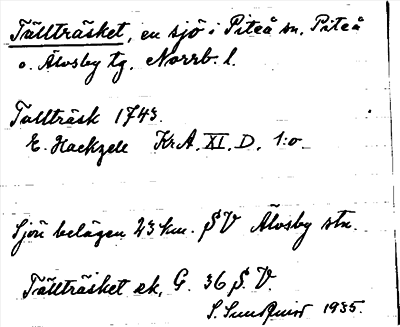 Tällträsket, en sjö i Piteå sn. Piteå
o. Älvsby tg. Norrb. l.
Tallträsk 1743.
E. Hackzell KrA. XI. D. 1:o
Sjön belägen 23 km. SV Älvsby stn.
Tällträsket ek. G. 36 S.V.
S. Sundqvist 1935.